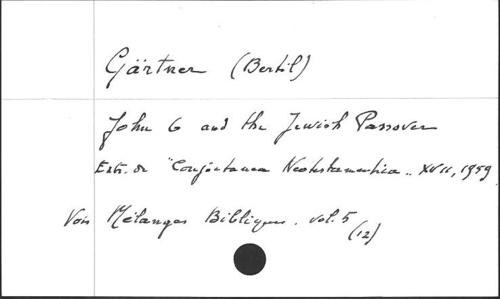 Gärtner (Bertil)
John 6 and the Jewish Passover
Extr. de "Conjectanea Neotestamentica" XVII, 1959
Voir Mélanges Bibliques. vol. 5 (12)